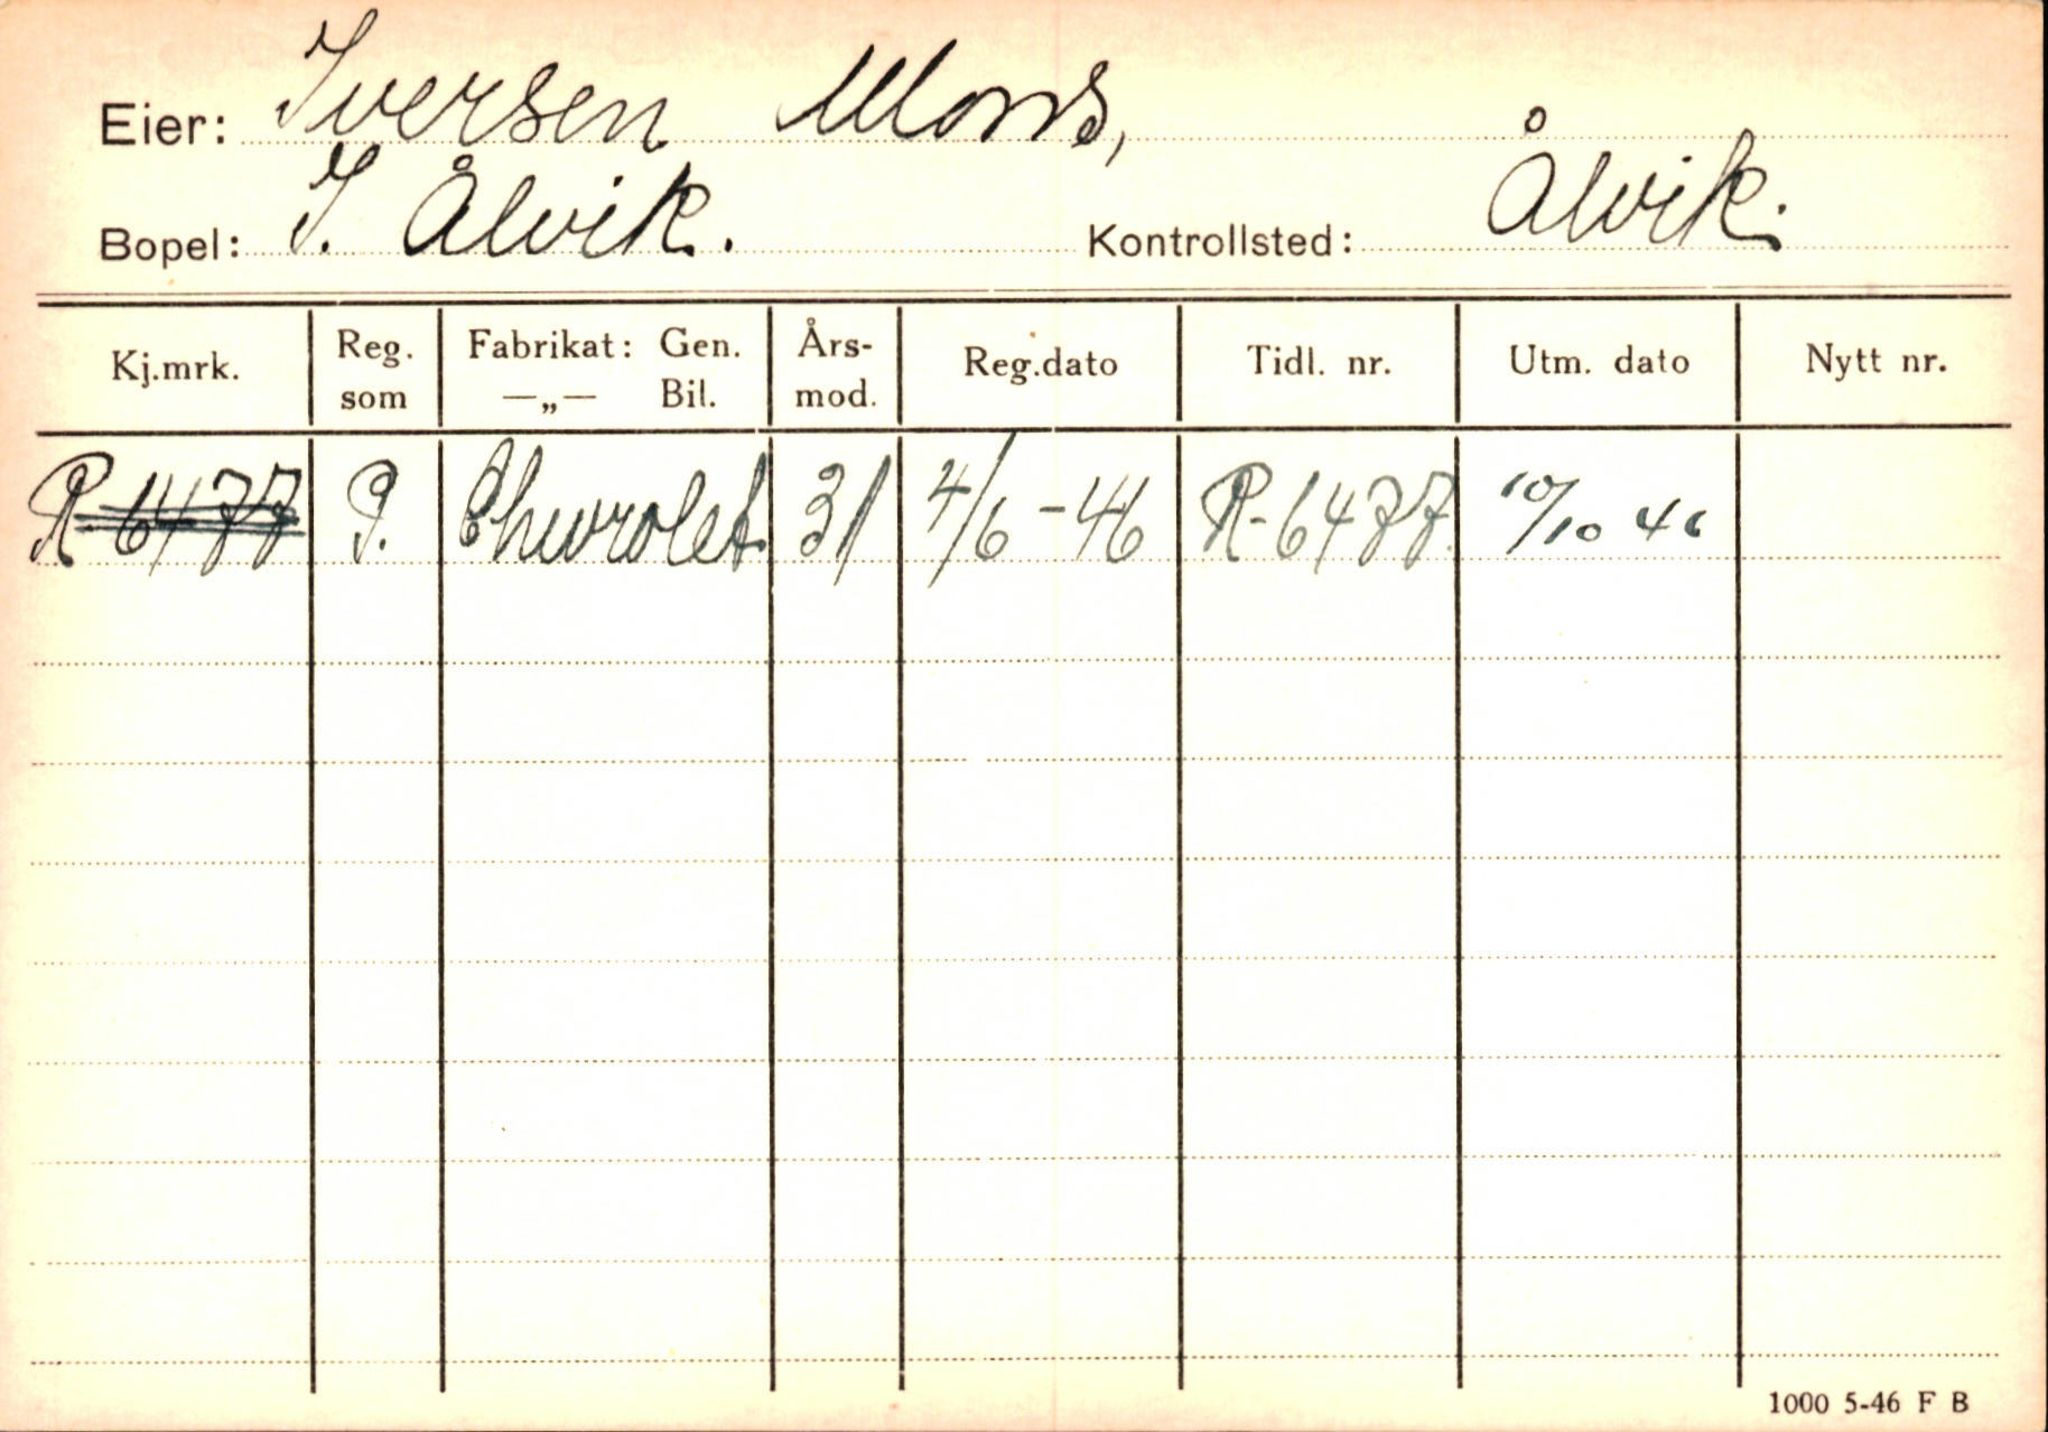 Eier: Iversen Mons,
Bopel: I. Ålvik. Kontrollsted: Ålvik.
Kj.mrk. Reg. som Fabrikat: Gen. —„— Bil. Års- mod. Reg.dato Tidl. nr. Utm. dato Nytt nr.
R-6477 P. Chevrolet. 31 4/6-46 R-6477. 10/10 46
1000 5-46 F B